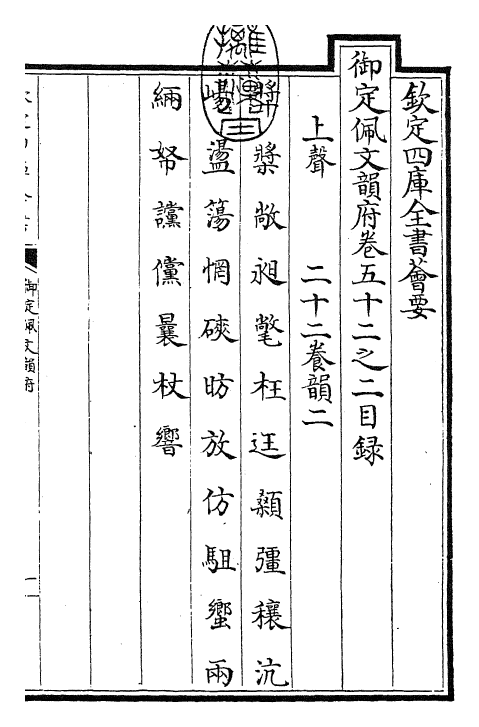 欽定四庫全書薈要
御定佩文韻府卷五十二之二目録
上聲　二十二養韻二
槳敞昶氅枉迋顙彊穰沆
盪蕩惘磢昉放仿駔蠁兩
緉帑讜儻曩杖響
御定佩文韻府